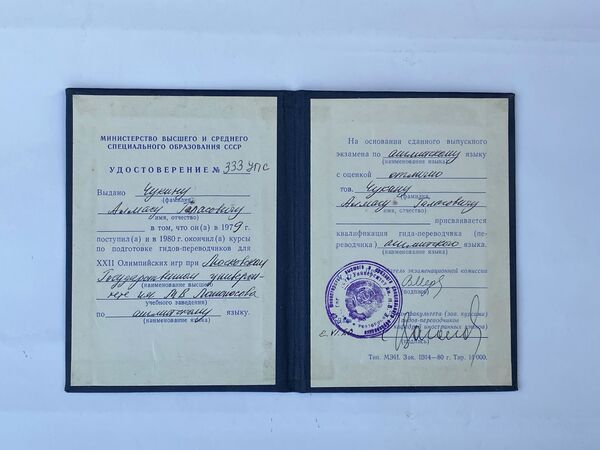 МИНИСТЕРСТВО ВЫСШЕГО И СРЕДНЕГО
СПЕЦИАЛЬНОГО ОБРАЗОВАНИЯ СССР
УДОСТОВЕРЕНИЕ № 333 УПС
Выдано Чукину
(фамилия)
Алмасу
имя, отчество)
в том, что он(а) в 1979 г.
поступил(а) и в 1980 г. окончил(а) курсы
по подготовке гидов-переводчиков для
XXII Олимпийских игр при Московском
Государственном универси-
(наименование высшего
тете им. М.В. Ломоносова
учебного заведения)
по английскому языку.
(наименование языка)
На основании сданного выпускного
экзамена по английскому языку
(наименование языка)
с оценкой отлично
тов. Чукину
(фамилия
Алмасу
имя, отчество)
присваивается
квалификация гида-переводчика (пе-
реводчика) английского языка.
(наименование языка)
экзаменационной комиссии
(подпись)
факультета (зав. курсами)
гидов-переводчиков
иностранных языков)
Тип. МЭИ. Зак. 1314—80 г. Тир. 10 000.